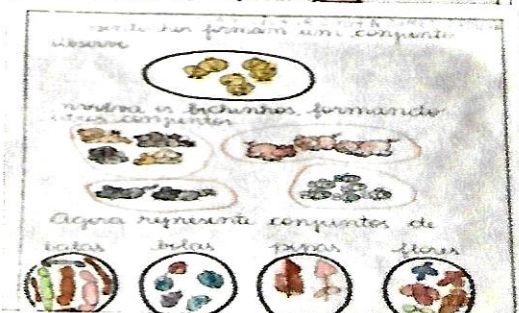 formam um conjunto
observe
envolva os bichinhos formando
outros conjuntos
Agora represente conjuntos de
balas bolas pipas flores